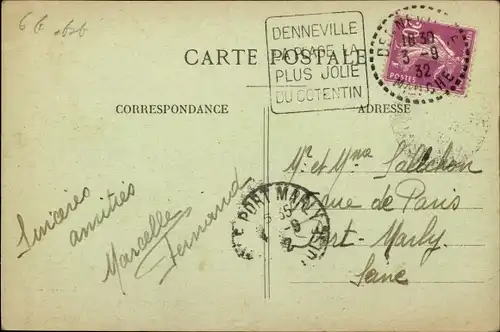 DENNEVILLE
LA PLAGE LA
PLUS JOLIE
DU COTENTIN
18 30
3 - 9
32
MANCHE
POSTES
CARTE POSTALE
CORRESPONDANCE
ADRESSE
Sincères
amitiés
Marcelle
Fernand
PORT MARLY
Mr et Mme
rue de Paris
Port-Marly
Seine